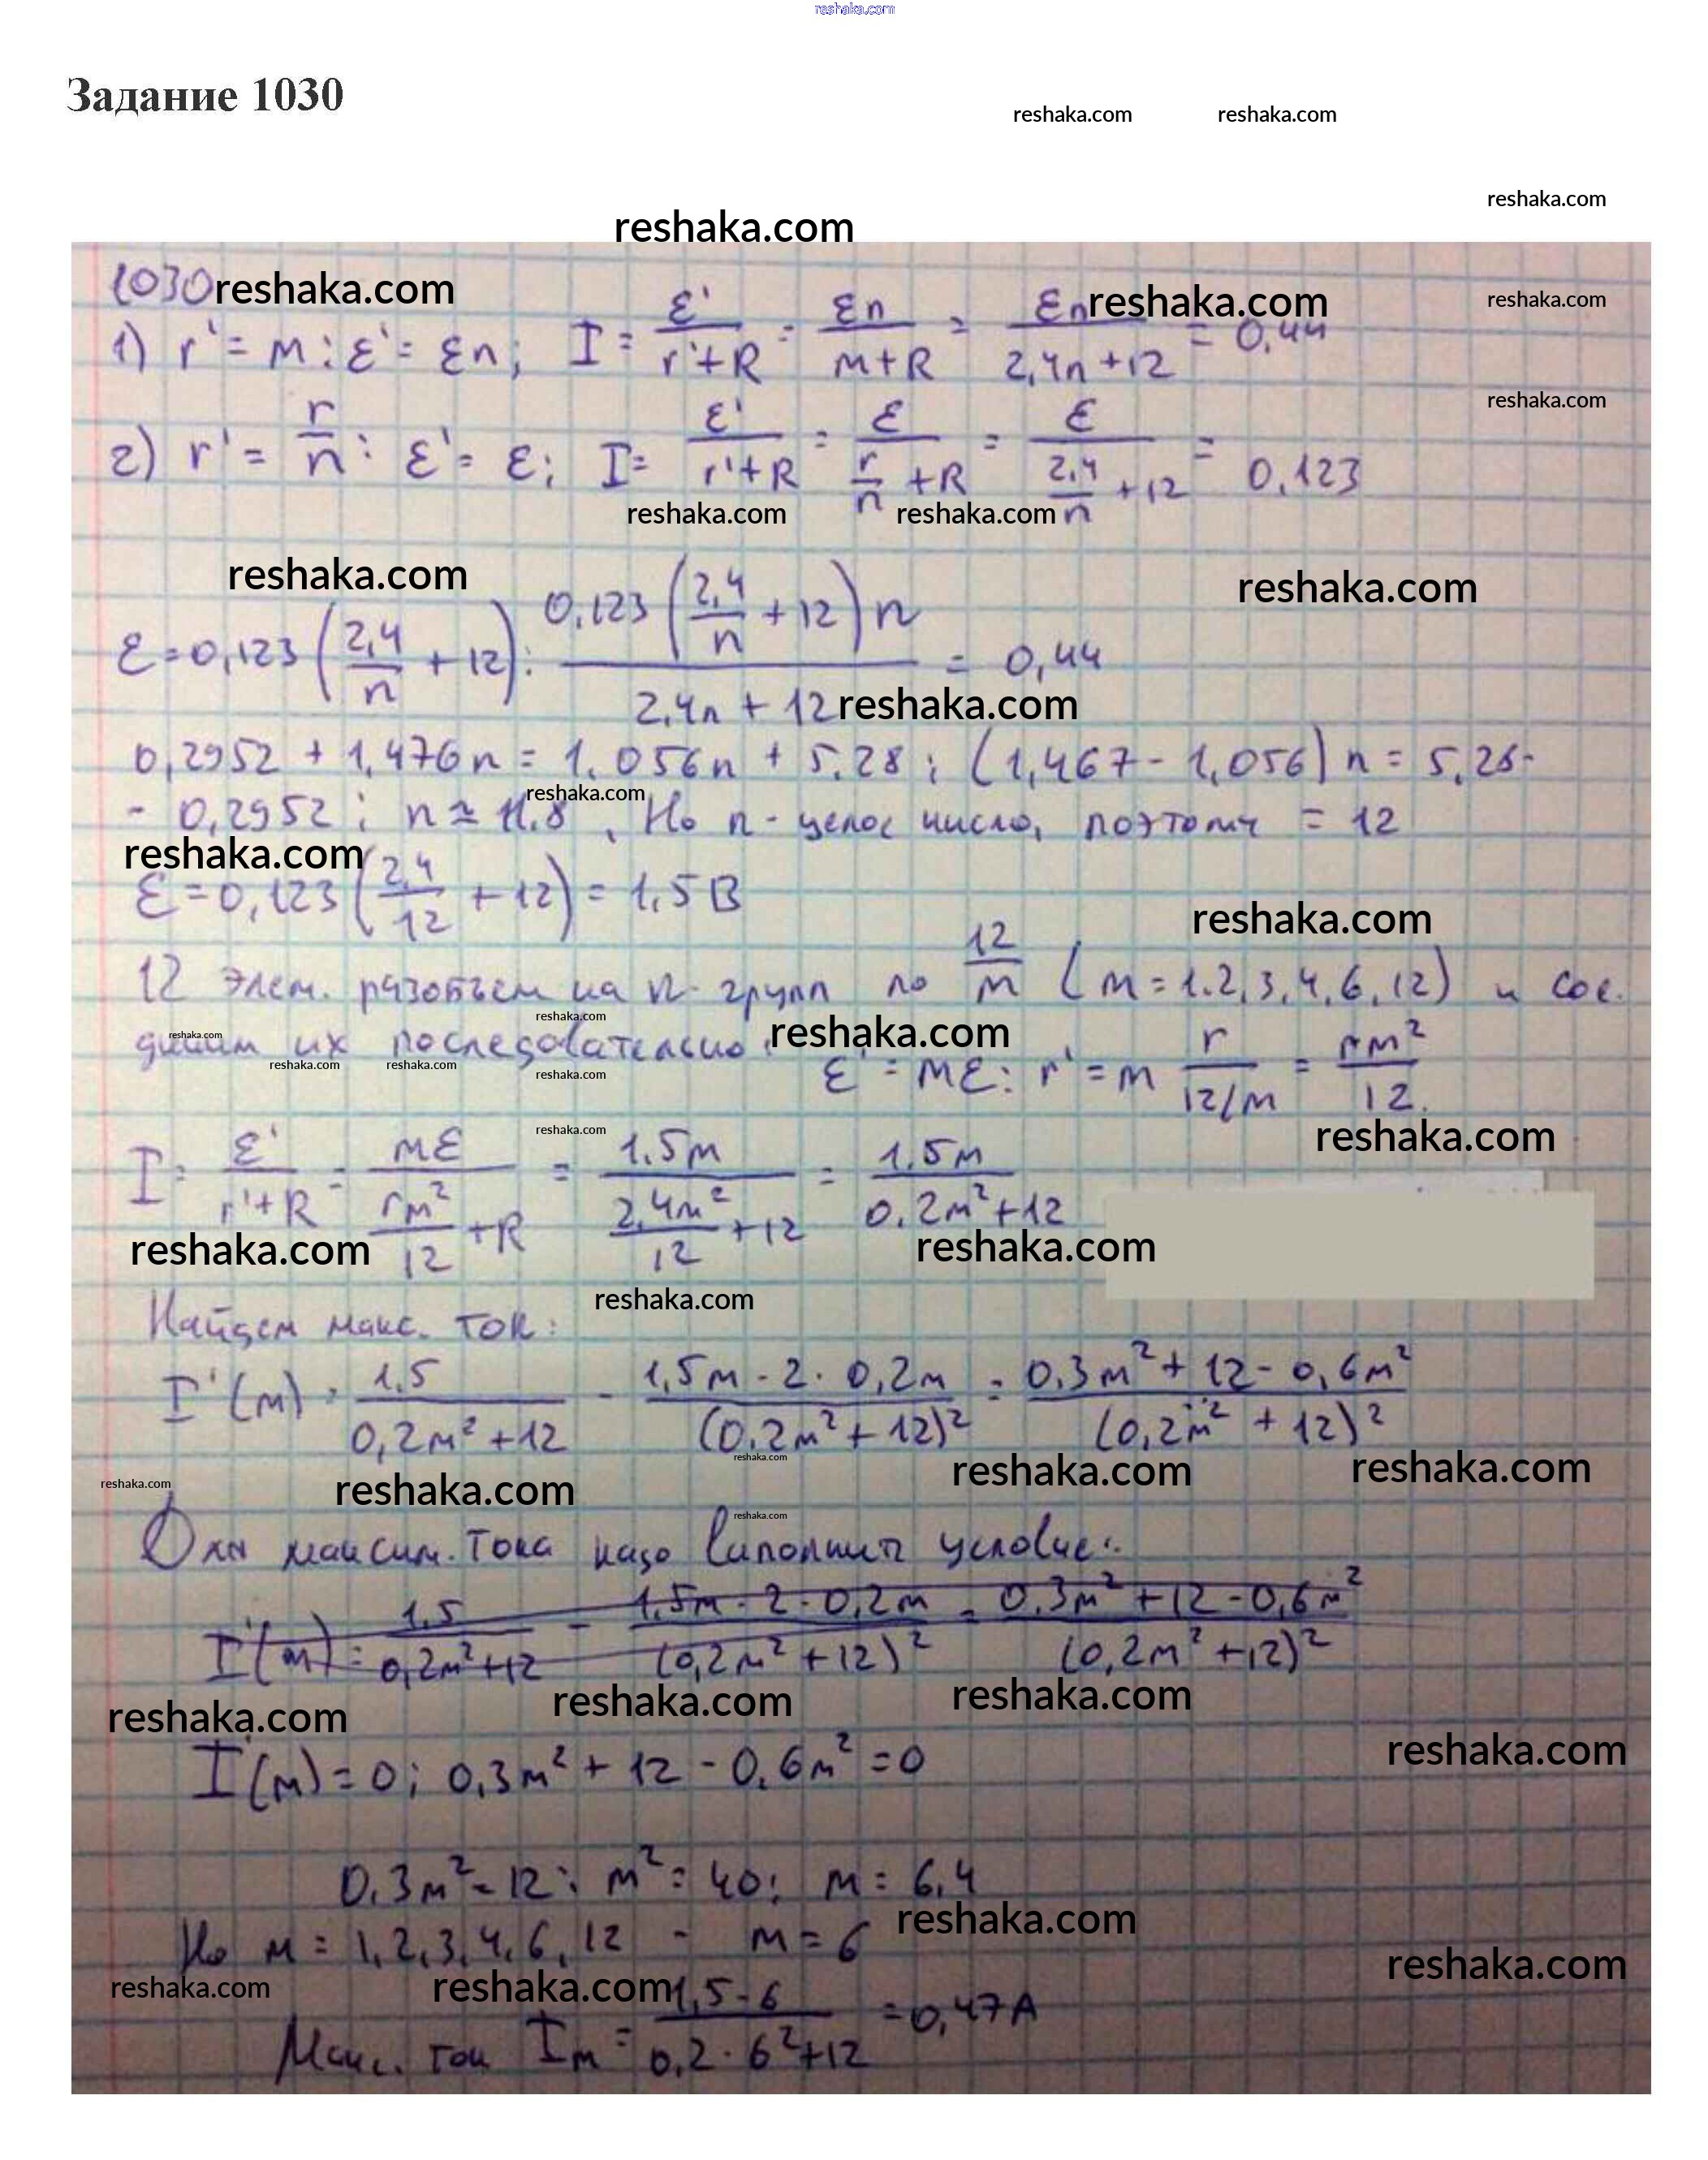 reshaka.com
Задание 1030
reshaka.com reshaka.com
reshaka.com
reshaka.com
1030 reshaka.com reshaka.com reshaka.com
1) r' = rn; ε' = εn; I = ε'/(r'+R) = εn/(rn+R) = εn/(2,4n+12) = 0,44
reshaka.com
2) r' = r/n; ε' = ε; I = ε'/(r'+R) = ε/(r/n+R) = ε/(2,4/n+12) = 0,123
reshaka.com reshaka.com
reshaka.com reshaka.com
ε = 0,123(2,4/n + 12); 0,123(2,4/n + 12)n/(2,4n + 12) = 0,44
reshaka.com
0,2952 + 1,476n = 1,056n + 5,28; (1,467 - 1,056)n = 5,28-
reshaka.com
- 0,2952; n ≈ 11,8, Но n - целое число, поэтому = 12
reshaka.com
ε = 0,123(2,4/12 + 12) = 1,5 В
reshaka.com
12 элем. разобьем на n групп по 12/m (m = 1,2,3,4,6,12) и сое.
reshaka.com reshaka.com reshaka.com
диним их последовательно:
reshaka.com reshaka.com reshaka.com
ε' = mε; r' = m r/(12/m) = rm²/12.
reshaka.com reshaka.com
I = ε'/(r'+R) = mε/(rm²/12+R) = 1,5m/(2,4m²/12+12) = 1,5m/(0,2m²+12)
reshaka.com reshaka.com
reshaka.com
Найдем макс. ток:
I'(m) = 1,5/(0,2m²+12) - 1,5m·2·0,2m/(0,2m²+12)² = (0,3m²+12-0,6m²)/(0,2m²+12)²
reshaka.com reshaka.com reshaka.com
reshaka.com reshaka.com
reshaka.com
Для максим. тока надо выполнить условие:
I'(m) = 1,5/(0,2m²+12) - 1,5m·2·0,2m/(0,2m²+12)² = (0,3m²+12-0,6m²)/(0,2m²+12)²
reshaka.com reshaka.com reshaka.com
reshaka.com
I(m) = 0; 0,3m² + 12 - 0,6m² = 0
0,3m² = 12; m² = 40; m = 6,4
reshaka.com
Но m = 1,2,3,4,6,12 - m = 6
reshaka.com
reshaka.com reshaka.com
Макс. ток Im = 1,5·6/(0,2·6²+12) = 0,47А